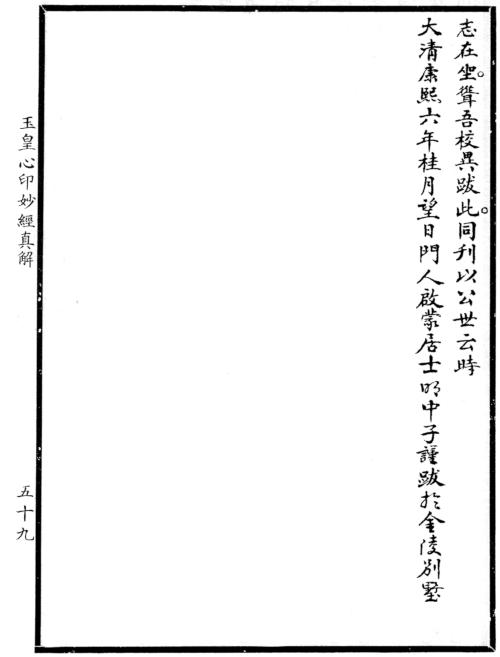 志在坐。聳吾校異跋此。同刋以公世云時
大清康熙六年桂月望日門人啟蒙居士明中子謹跋於金陵別墅
玉皇心印妙經真解
五十九